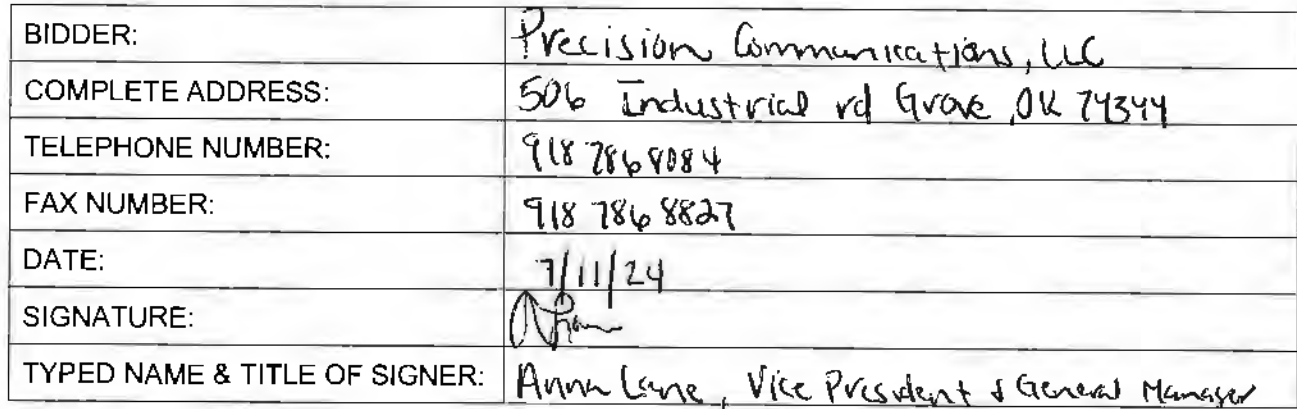 BIDDER: Precision Communications, LLC
COMPLETE ADDRESS: 506 Industrial rd Grove, OK 74344
TELEPHONE NUMBER: 918 786 8084
FAX NUMBER: 918 786 8827
DATE: 7/11/24
SIGNATURE:
TYPED NAME & TITLE OF SIGNER: Anna Lane, Vice President & General Manager